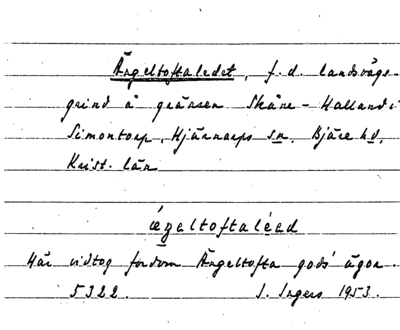 Ängeltoftaledet, f.d. landsvägs-
grind å gränsen Skåne - Halland i
Simontorp, Hjärnarps sn. Bjäre hd,
Krist. län
ængeltoftaléad
Här vidtog fordom Ängeltofta gods' ägor.
5322. I. Ingers 1953.